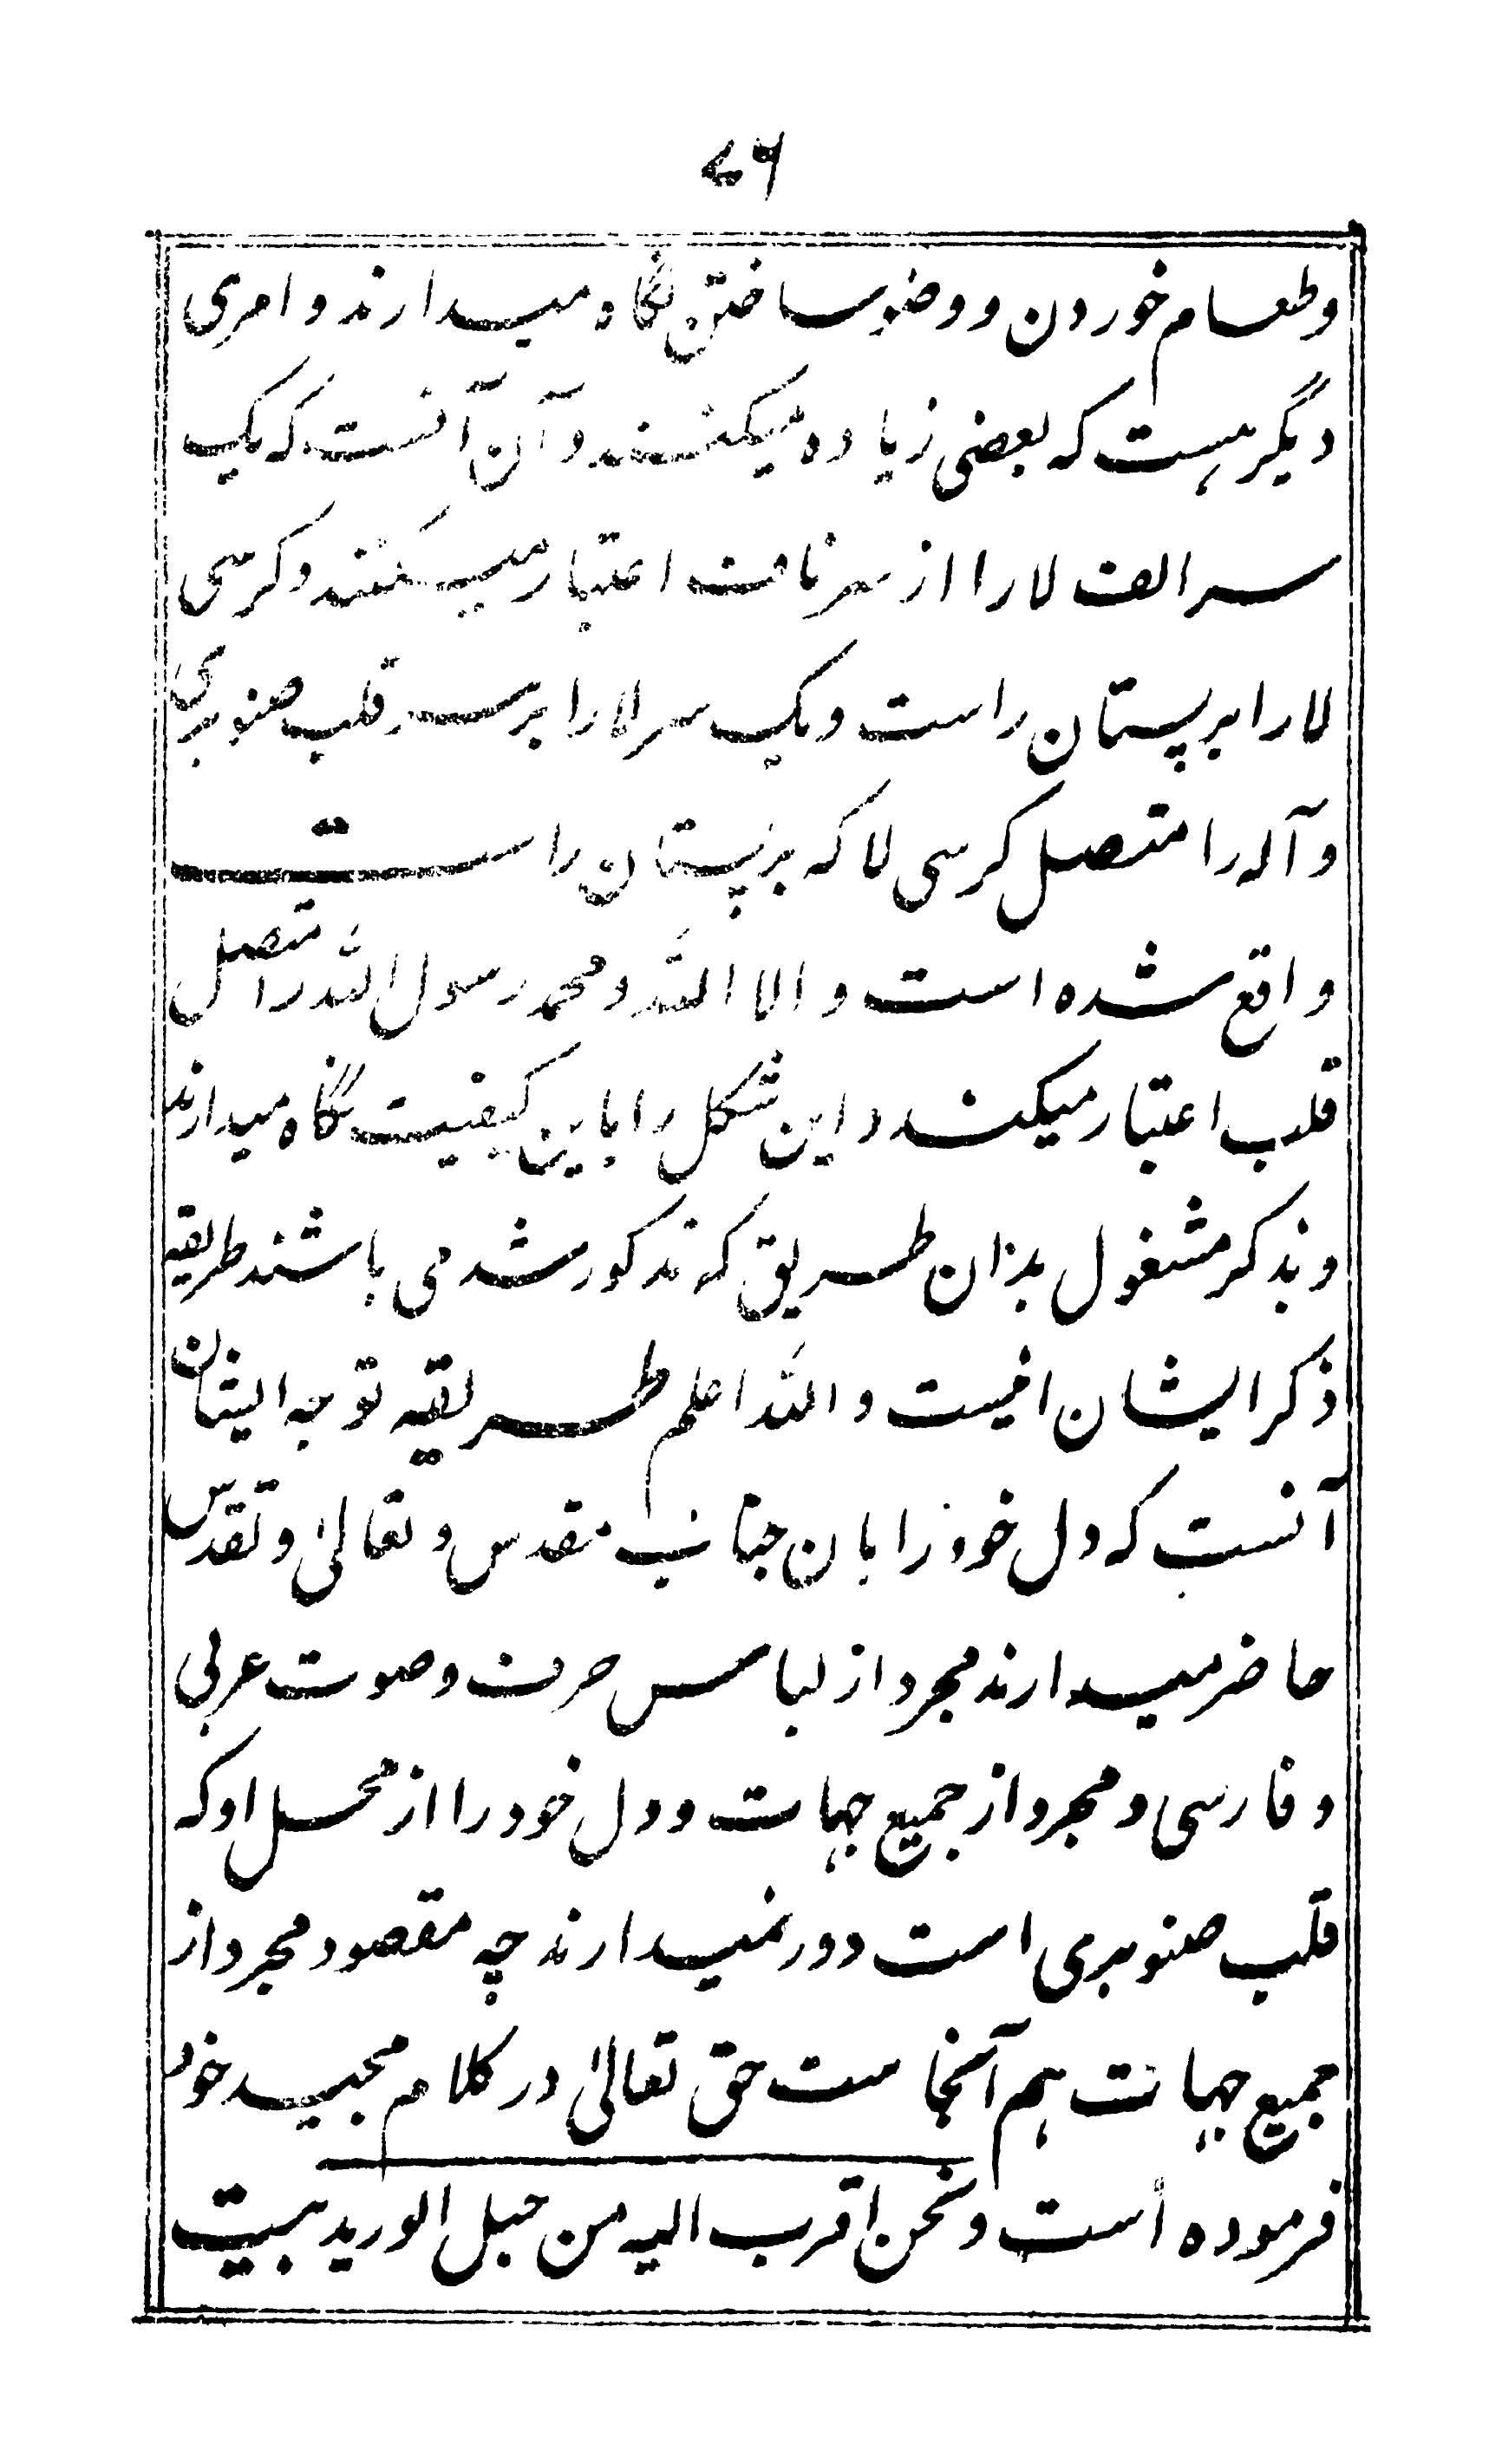 ۷۶
وطعام خوردن و وضو ساختن نگاه میدارند و امری
دیگر هست که بعضی زیاده میکنند و آن آنست که یک
سر الف لا را از سر ناف اعتبار میکنند و کرسی
لا را بر پستان راست و یک سر لا را بر سر قلب صنوبری
و آله را متصل کرسی لا که بر پستان راست
واقع شده است و الا الله و محمد رسول الله را متصل
قلب اعتبار میکنند و این شکل را باین کیفیت نگاه میدارند
و بذکر مشغول بدان طریق که مذکور شد می باشند طریقه
ذکر ایشان اینست والله اعلم طریقه توجه ایشان
آنست که دل خود را بان جناب مقدس و تعالیٰ و تقدس
حاضر میدارند مجرد از لباس حرف و صوت عربی
و فارسی و مجرد از جمیع جهات و دل خود را از محل او که
قلب صنوبری است دور نمیدارند چه مقصود مجرد از
جمیع جهات هم آنجاست حق تعالیٰ در کلام مجید خود
فرموده است و نحن اقرب الیه من حبل الورید بیت